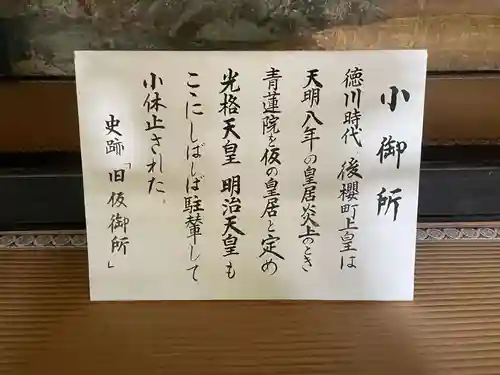 小御所
徳川時代 後櫻町上皇は
天明八年の皇居炎上のとき
青蓮院を仮の皇居と定め
光格天皇 明治天皇も
ここにしばしば駐輦して
小休止された。
史跡「旧仮御所」